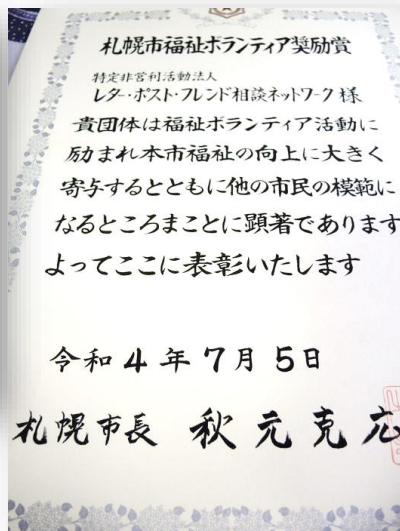 札幌市福祉ボランティア奨励賞
特定非営利活動法人
レター・ポスト・フレンド相談ネットワーク 様
貴団体は福祉ボランティア活動に
励まれ本市福祉の向上に大きく
寄与するとともに他の市民の模範に
なるところまことに顕著であります
よってここに表彰いたします
令和4年7月5日
札幌市長 秋元克広